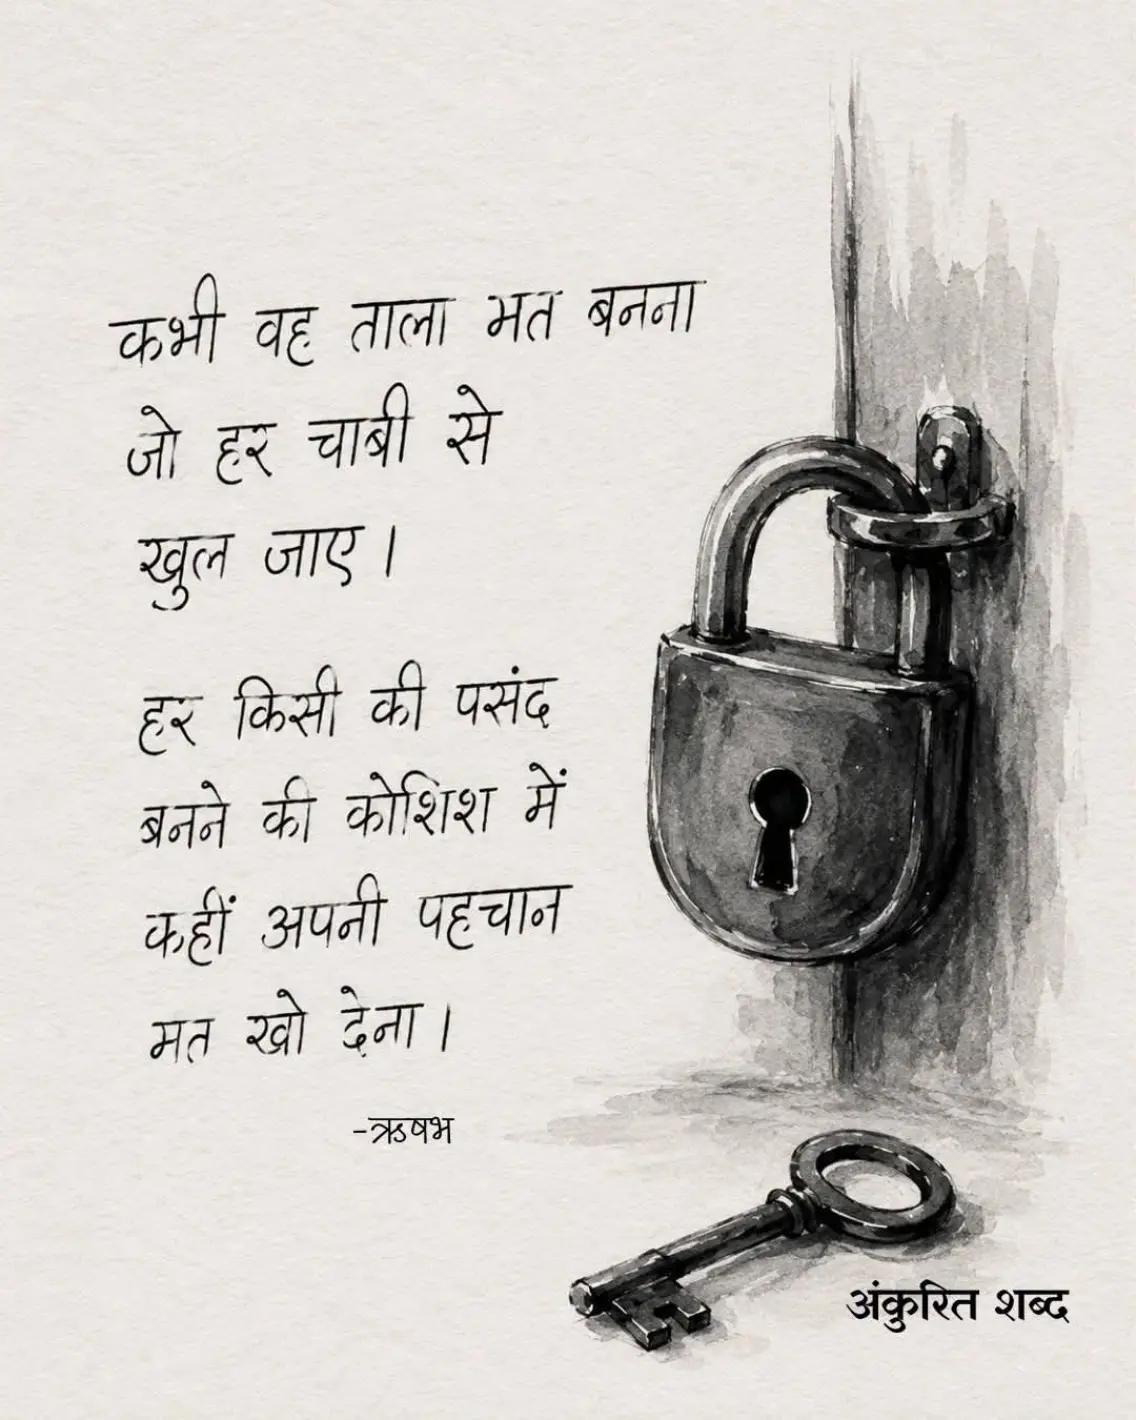 कभी वह ताला मत बनना
जो हर चाबी से
खुल जाए।
हर किसी की पसंद
बनने की कोशिश में
कहीं अपनी पहचान
मत खो देना।
-ऋषभ
अंकुरित शब्द